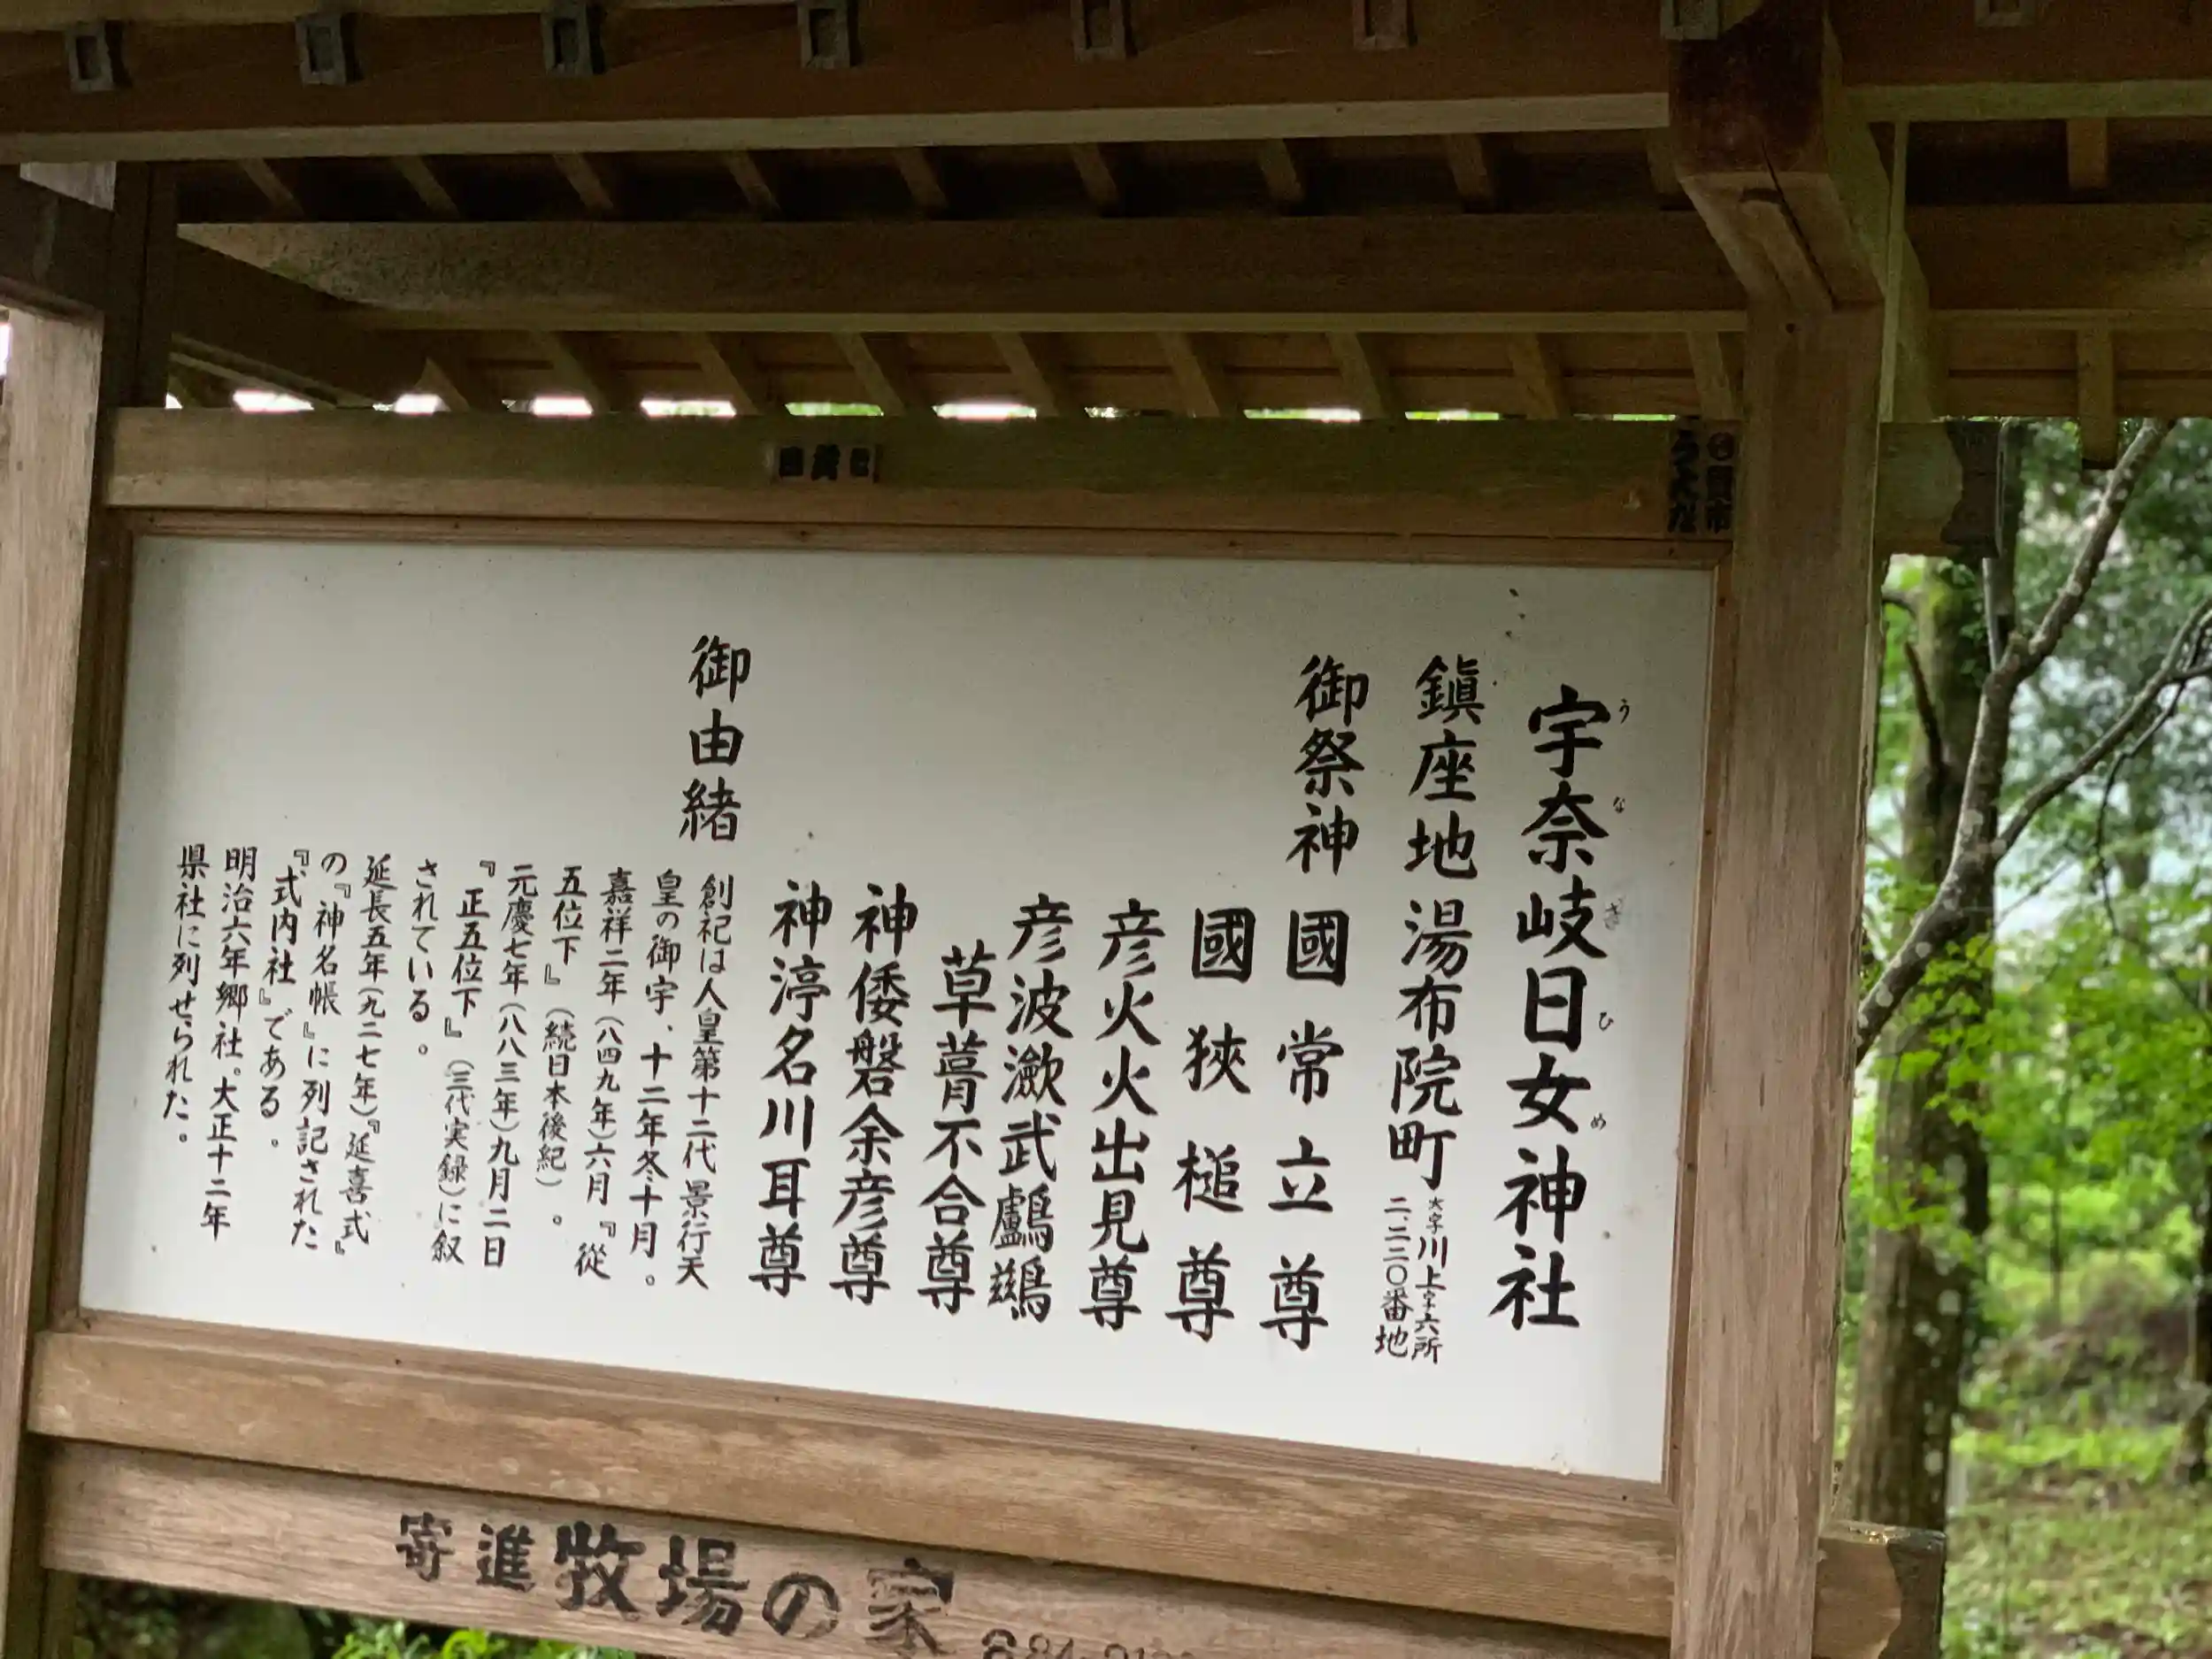 宇奈岐日女神社
うなぎひめ
鎮座地 湯布院町 大字川上字六所
二、二二〇番地
御祭神 國常立尊
國狹槌尊
彦火火出見尊
彦波瀲武鸕鷀
草葺不合尊
神倭磐余彦尊
神渟名川耳尊
御由緒
創祀は人皇第十二代景行天
皇の御宇、十二年冬十月。
嘉祥二年(八四九年)六月『從
五位下』(続日本後紀)。
元慶七年(八八三年)九月二日
『正五位下』(三代実録)に叙
されている。
延長五年(九二七年)『延喜式』
の『神名帳』に列記された
『式内社』である。
明治六年郷社。大正十二年
県社に列せられた。
寄進 牧場の家